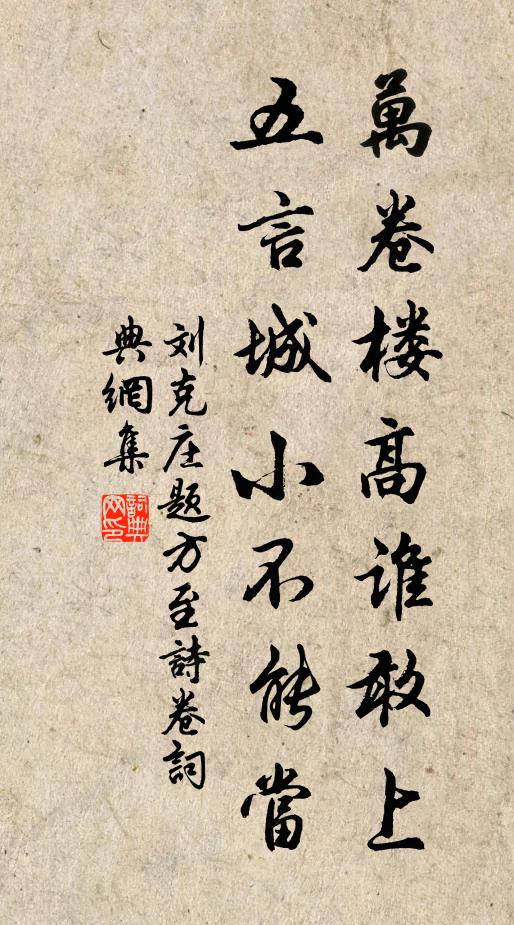 萬卷楼高谁敢上
五言城小不能當
刘克庄题方至詩卷詞
典網集
詞典网印